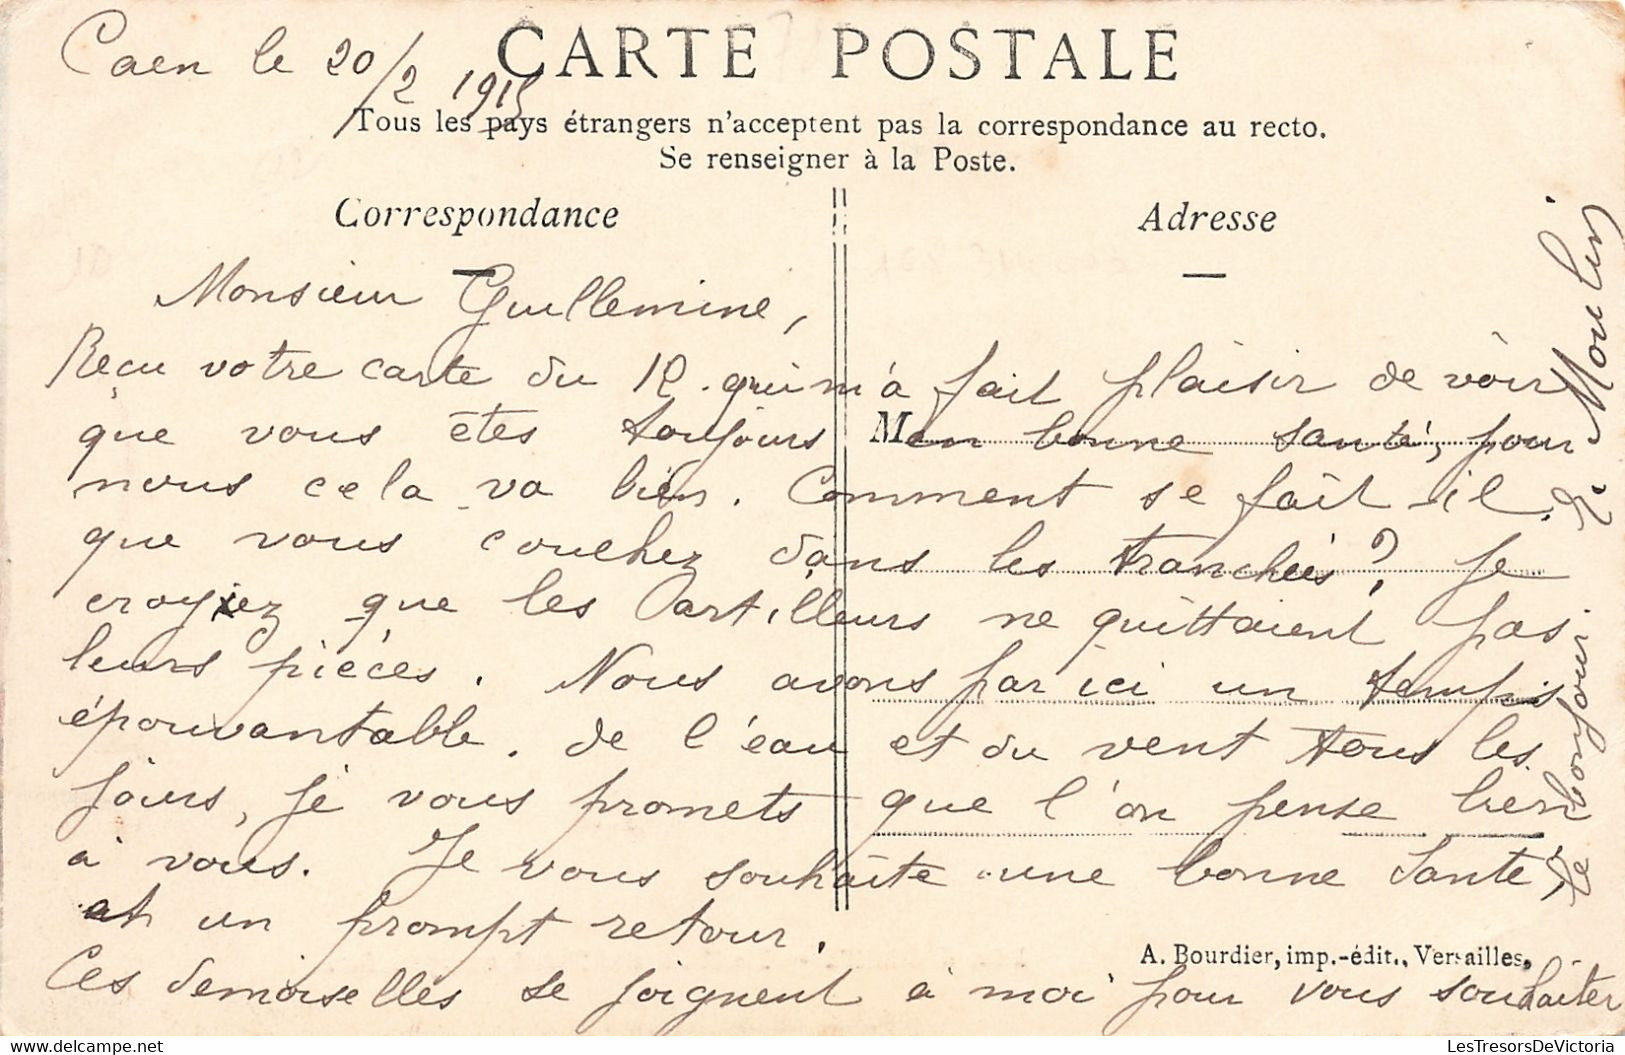 Caen le 20/2 1915
CARTE POSTALE
Tous les pays étrangers n'acceptent pas la correspondance au recto.
Se renseigner à la Poste.
Correspondance
Adresse
Monsieur Guillemine,
Reçu votre carte du 12. qui m'a fait plaisir de voir
que vous êtes toujours en bonne santé, pour
M
nous cela va bien. Comment se fait-il
que vous couchez dans les tranchées? Je
croyiez que les artilleurs ne quittaient pas
leurs pièces. Nous avons par ici un temps
épouvantable. de l'eau et du vent tous les
jours, je vous promets que l'on pense bien
à vous. Je vous souhaite une bonne Santé,
et un prompt retour.
A. Bourdier, imp.-édit., Versailles.
Ces demoiselles se joignent à moi pour vous souhaiter
le bonjour. Moulin
LesTresorsDeVictoria